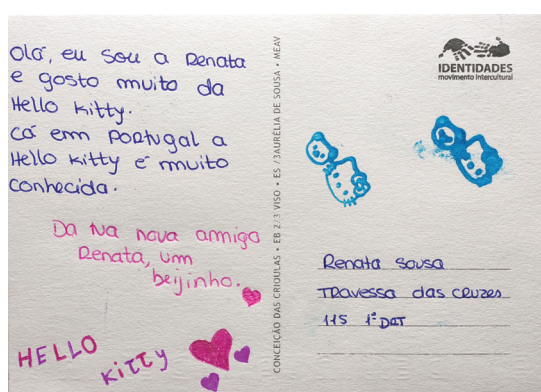 Olá, eu sou a Renata
e gosto muito da
Hello Kitty.
Cá em Portugal a
Hello Kitty é muito
conhecida.
Da tua nova amiga
Renata, um
beijinho.
HELLO
KITTY
CONCEIÇÃO DAS CRIOULAS • EB 2/3 VISO • ES /3AURÉLIA DE SOUSA • MEAV
IDENTIDADES
movimento intercultural
Renata Sousa
Travessa das Cruzes
115 1º DRT